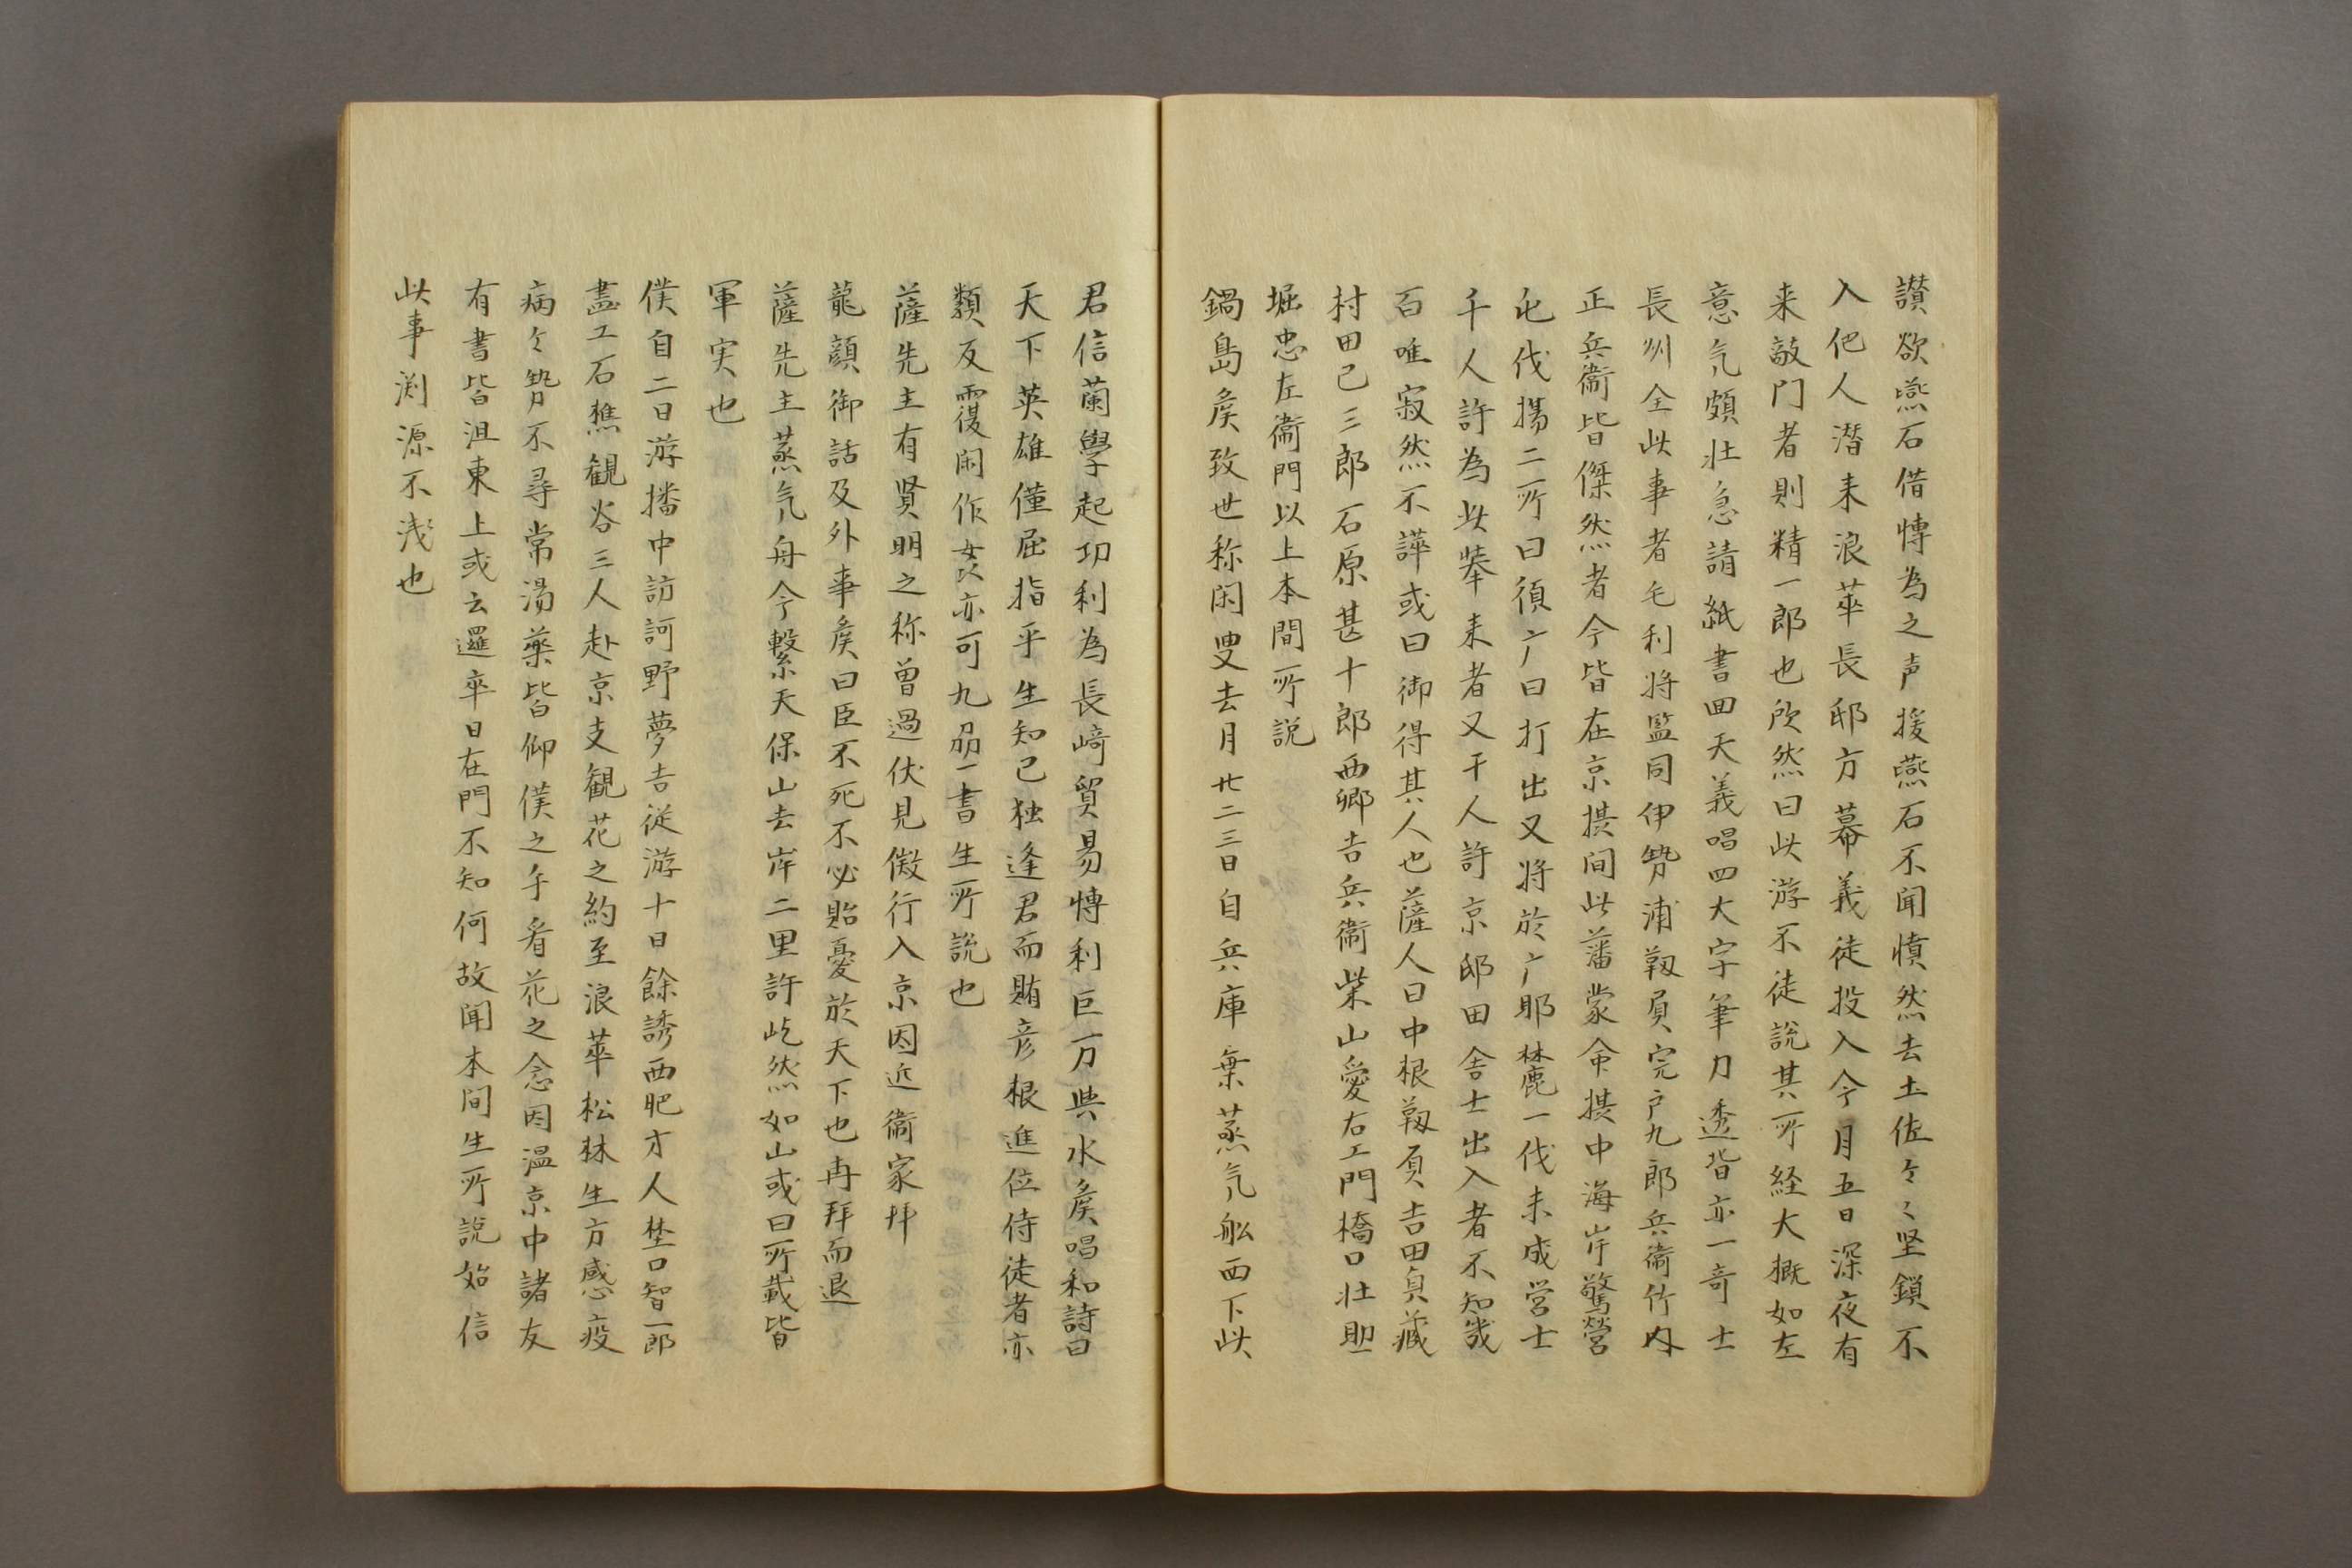 讃欲燕石借慱為之声援燕石不聞憤然去土佐々々堅鎖不
入他人潜来浪華長邸方幕義徒投入今月五日深夜有
来敲門者則精一郎也欣然曰此游不徒説其所経大概如左
意気頗壮急請紙書回天義唱四大字筆力透背亦一奇士
長州全此事者毛利将監同伊勢浦靱負完戸九郎兵衛竹内
正兵衛皆傑然者今皆在京摂间此藩蒙命摂中海岸警営
屯伐揚二所曰須广曰打出又将於广耶林麓一伐未成営士
千人許為此挙来者又干人許京邸田舎士出入者不知幾
百唯寂然不譁或曰御得其人也薩人曰中根靱負吉田貞藏
村田己三郎石原甚十郎西郷吉兵衛柴山愛右エ門橋口壮助
堀忠左衛門以上本間所説
鍋島矦致世称闲叟去月廿二三日自兵庫棄蒸气舩西下此
君信蘭學起功利為長﨑貿易慱利巨万與水矦唱和詩曰
天下英雄僅屈指平生知己独逢君而賄彦根進位侍徒者亦
類反覆闲作亦可九一書生所説也
薩先主有賢明之称曽過伏見微行入京因近衛家拝
龍顔御話及外事矦曰臣不死不必貽憂於天下也再拝而退
薩先主蒸气舟今繫天保山去岸二里許屹然如山或曰所載皆
軍実也
僕自二日游播中訪訶野夢吉従游十日餘誘西肥才人埜口智一郎
畫工石樵観谷三人赴京支観花之約至浪華松林生方感疫
病々勢不尋常湯薬皆仰僕之手看花之念因温京中諸友
有書皆沮東上或云邏卒日在門不知何故聞本间生所説始信
此事渕源不浅也